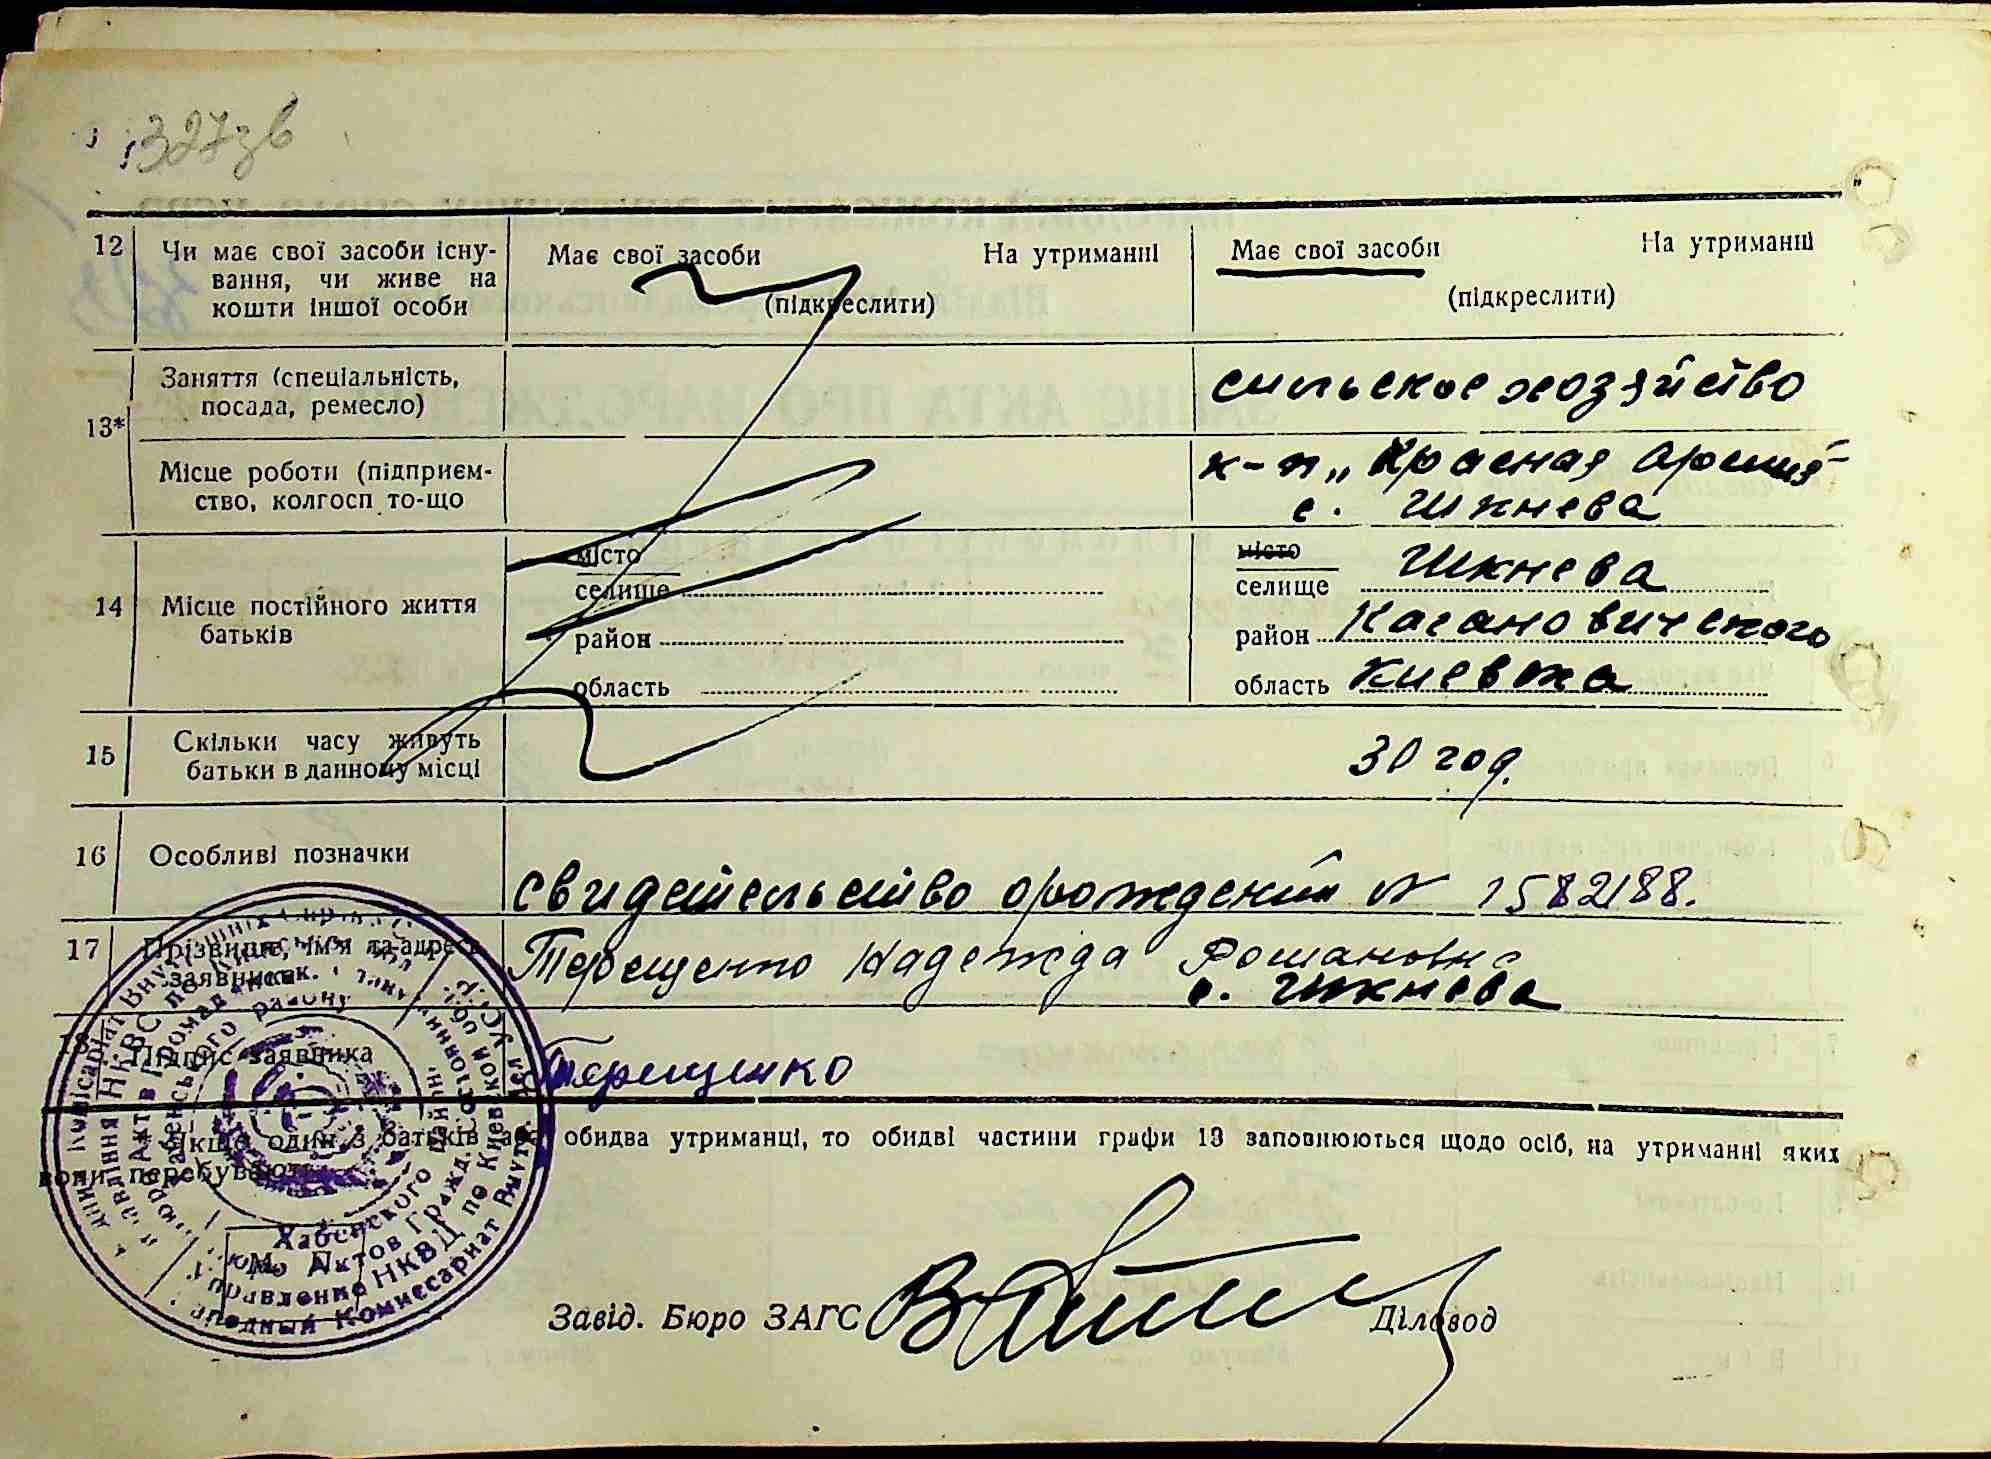 327зв
12 Чи має свої засоби існу-
вання, чи живе на
кошти іншої особи
Має свої засоби На утриманні
(підкреслити)
Має свої засоби На утриманні
(підкреслити)
13*
Заняття (спеціальність,
посада, ремесло)
сильское хозяйство
Місце роботи (підприєм-
ство, колгосп то-що
к-п „Красная Армия"
с. Шкнева
14 Місце постійного життя
батьків
місто
селище
район
область
місто
селище Шкнева
район Кагановичского
область Киевска
15 Скільки часу живуть
батьки в данному місці
30 год.
16 Особливі позначки
свидетельство орождений N 1582188.
17 Прізвище, ім'я та адреса
заявника
Терещенко Надежда Романовна
с. Шкнева
18 Підпис заявника
Терещенко
Якщо один з батьків або обидва утриманці, то обидві частини графи 13 заповнюються щодо осіб, на утриманні яких
вони перебувають.
Хабенского
Актов Гражд.
Управление НКВД по Киевской обл.
Комиссариат Внутр.
М.
Завід. Бюро ЗАГС Діловод